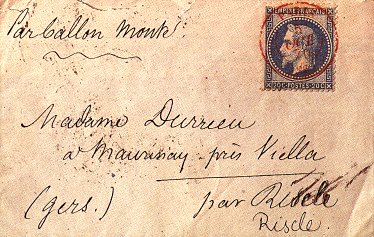 Par ballon monté.
EMPIRE FRANÇAIS
20c POSTES 20c
Madame Durrieu
à Mauvusay près Viella
(Gers.) par Riscle
Riscle.